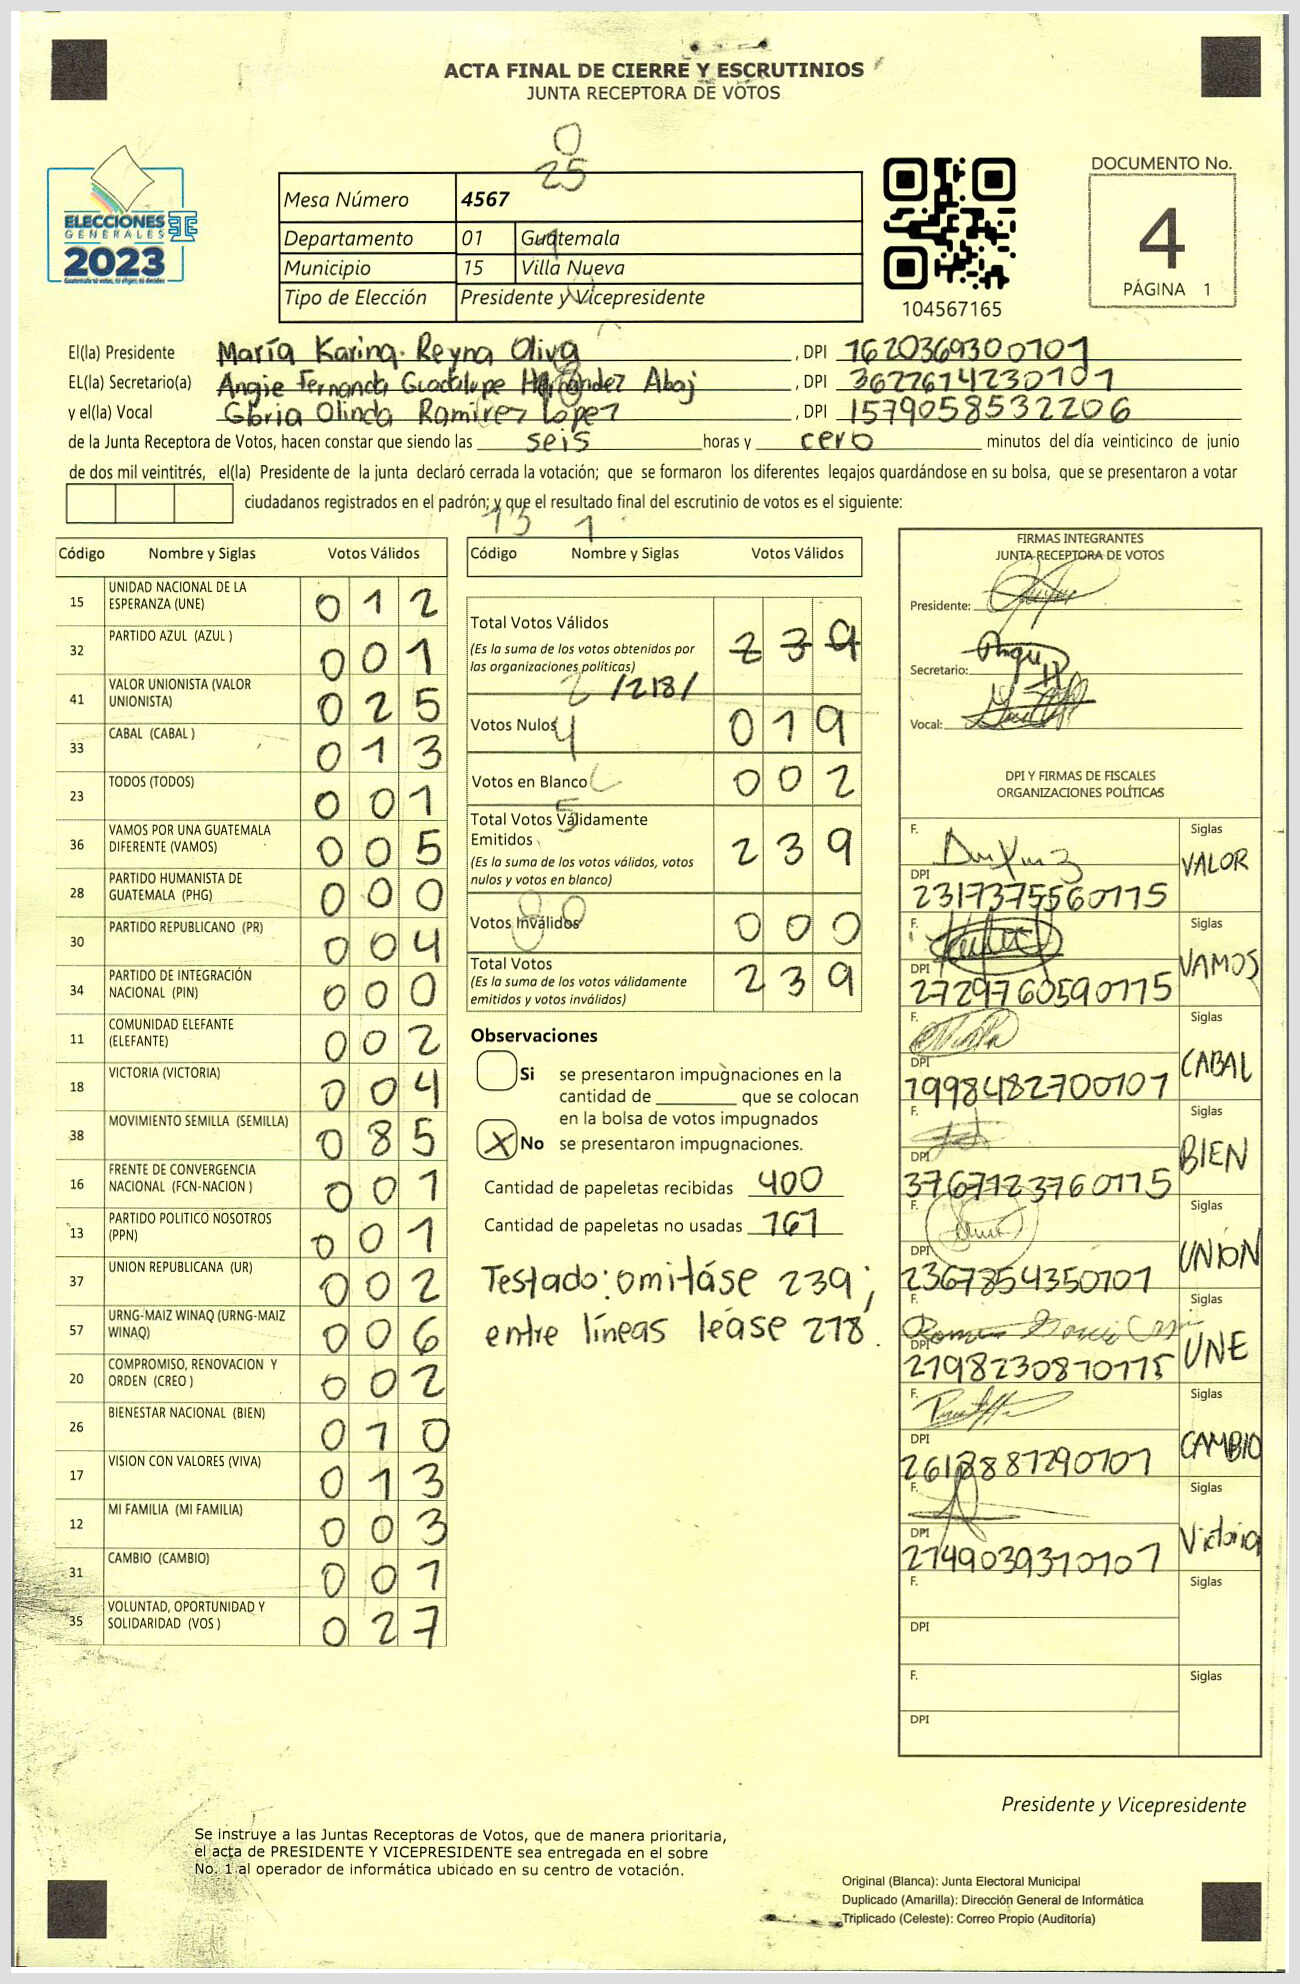 ACTA FINAL DE CIERRE Y ESCRUTINIOS
JUNTA RECEPTORA DE VOTOS
0
25
ELECCIONES
GENERALES
2023
Guatemala tú votas, tú eliges, tú decides
Mesa Número 4567
Departamento 01 Guatemala
Municipio 15 Villa Nueva
Tipo de Elección Presidente y Vicepresidente
104567165
DOCUMENTO No.
4
PÁGINA 1
El(la) Presidente María Karina Reyna Oliva, DPI 1620369300101
EL(la) Secretario(a) Angie Fernanda Guadalupe Hernández Abaj, DPI 3622614230101
y el(la) Vocal Gloria Olinda Ramírez López, DPI 1579058532206
de la Junta Receptora de Votos, hacen constar que siendo las seis horas y cero minutos del día veinticinco de junio
de dos mil veintitrés, el(la) Presidente de la junta declaró cerrada la votación; que se formaron los diferentes legajos quardándose en su bolsa, que se presentaron a votar
ciudadanos registrados en el padrón; y que el resultado final del escrutinio de votos es el siguiente:
13 1
Código Nombre y Siglas Votos Válidos
15 UNIDAD NACIONAL DE LA ESPERANZA (UNE) 0 1 2
32 PARTIDO AZUL (AZUL ) 0 0 1
41 VALOR UNIONISTA (VALOR UNIONISTA) 0 2 5
33 CABAL (CABAL ) 0 1 3
23 TODOS (TODOS) 0 0 1
36 VAMOS POR UNA GUATEMALA DIFERENTE (VAMOS) 0 0 5
28 PARTIDO HUMANISTA DE GUATEMALA (PHG) 0 0 0
30 PARTIDO REPUBLICANO (PR) 0 0 4
34 PARTIDO DE INTEGRACIÓN NACIONAL (PIN) 0 0 0
11 COMUNIDAD ELEFANTE (ELEFANTE) 0 0 2
18 VICTORIA (VICTORIA) 0 0 4
38 MOVIMIENTO SEMILLA (SEMILLA) 0 8 5
16 FRENTE DE CONVERGENCIA NACIONAL (FCN-NACION ) 0 0 1
13 PARTIDO POLITICO NOSOTROS (PPN) 0 0 1
37 UNION REPUBLICANA (UR) 0 0 2
57 URNG-MAIZ WINAQ (URNG-MAIZ WINAQ) 0 0 6
20 COMPROMISO, RENOVACION Y ORDEN (CREO ) 0 0 2
26 BIENESTAR NACIONAL (BIEN) 0 1 0
17 VISION CON VALORES (VIVA) 0 1 3
12 MI FAMILIA (MI FAMILIA) 0 0 3
31 CAMBIO (CAMBIO) 0 0 1
35 VOLUNTAD, OPORTUNIDAD Y SOLIDARIDAD (VOS ) 0 2 7
Código Nombre y Siglas Votos Válidos
Total Votos Válidos 2 3 9
(Es la suma de los votos obtenidos por
las organizaciones políticas)
/218/
Votos Nulos 0 1 9
Votos en Blanco 0 0 2
Total Votos Válidamente
Emitidos 2 3 9
(Es la suma de los votos válidos, votos
nulos y votos en blanco)
Votos Inválidos 0 0 0
Total Votos 2 3 9
(Es la suma de los votos válidamente
emitidos y votos inválidos)
Observaciones
Si se presentaron impugnaciones en la
cantidad de ________ que se colocan
en la bolsa de votos impugnados
X No se presentaron impugnaciones.
Cantidad de papeletas recibidas 400
Cantidad de papeletas no usadas 161
Testado: omitáse 239;
entre líneas léase 218.
FIRMAS INTEGRANTES
JUNTA RECEPTORA DE VOTOS
Presidente:
Secretario:
Vocal:
DPI Y FIRMAS DE FISCALES
ORGANIZACIONES POLÍTICAS
F. Siglas VALOR
DPI 2317375560115
F. Siglas VAMOS
DPI 2729760590115
F. Siglas CABAL
DPI 1998482700101
F. Siglas BIEN
DPI 3767123760115
F. Siglas UNIÓN
DPI 2367854350101
F. Siglas UNE
DPI 2198230870115
F. Siglas CAMBIO
DPI 2618887290101
F. Siglas Victoria
DPI 2149039310101
F. Siglas
DPI
F. Siglas
DPI
Presidente y Vicepresidente
Se instruye a las Juntas Receptoras de Votos, que de manera prioritaria,
el acta de PRESIDENTE Y VICEPRESIDENTE sea entregada en el sobre
No. 1 al operador de informática ubicado en su centro de votación.
Original (Blanca): Junta Electoral Municipal
Duplicado (Amarilla): Dirección General de Informática
Triplicado (Celeste): Correo Propio (Auditoría)